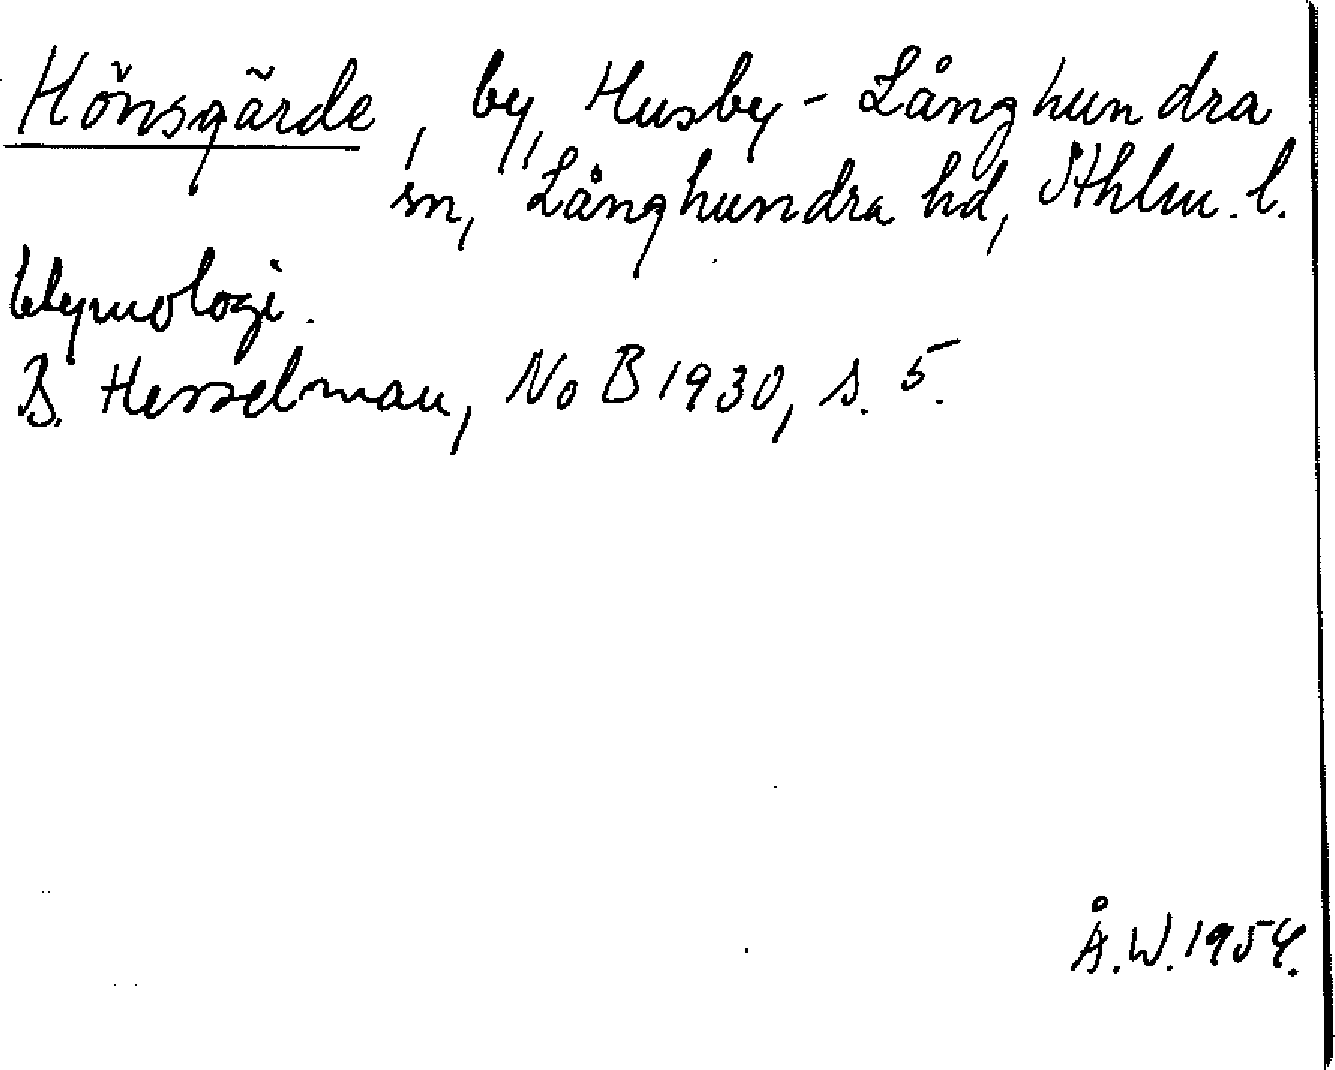 Hönsgärde, by, Husby-Långhundra
sn, Långhundra hd, Sthlm. l.
Etymologi.
B. Hesselman, NoB 1930, s. 5.
Å.W. 1954.